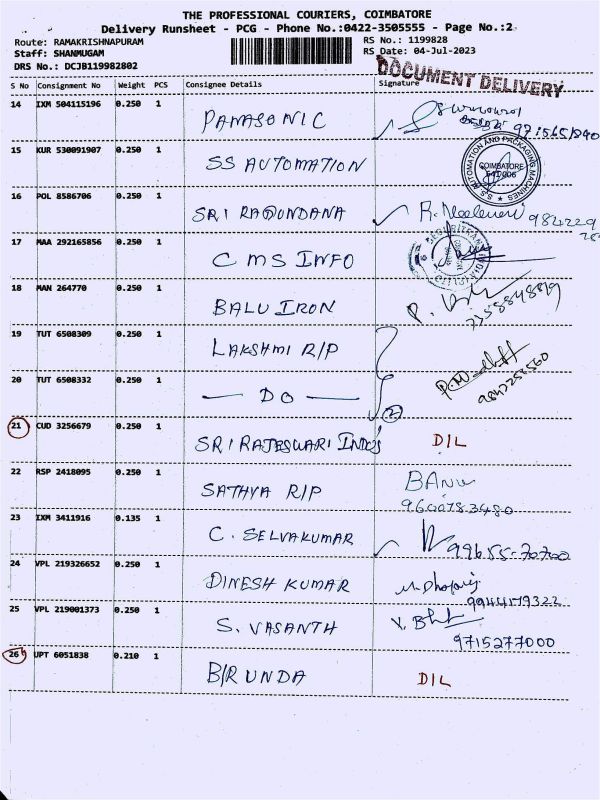 THE PROFESSIONAL COURIERS, COIMBATORE
Delivery Runsheet - PCG - Phone No.:0422-3505555 - Page No.:2
Route: RAMAKRISHNAPURAM RS No.: 1199828
Staff: SHANMUGAM RS Date: 04-Jul-2023
DRS No.: DCJB119982802
DOCUMENT DELIVERY
S No Consignment No Weight PCS Consignee Details Signature
14 IXM 504115196 0.250 1 PANASONIC
15 KUR 530091907 0.250 1 SS AUTOMATION
S.S. AUTOMATION AND PACKAGING MACHINES
COIMBATORE
641 006
16 POL 8586706 0.250 1 SRI RAGUNDANA
17 MAA 292165856 0.250 1 CMS INFO
18 MAN 264770 0.250 1 BALU IRON
19 TUT 6508309 0.250 1 LAKSHMI R/P
20 TUT 6508332 0.250 1 — DO — 2
21 CUD 3256679 0.250 1 SRI RAJESWARI INDS DIL
22 RSP 2418095 0.250 1 SATHYA R/P BANU
9600783480
23 IXM 3411916 0.135 1 C. SELVAKUMAR 99655-70700
24 VPL 219326652 0.250 1 DINESH KUMAR
25 VPL 219001373 0.250 1 S. VASANTH
9715277000
26 UPT 6051838 0.210 1 BIRUNDA DIL